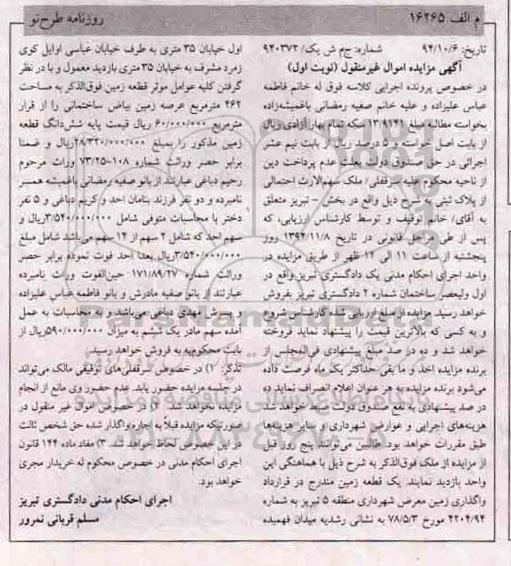 م الف ۱۶۲۶۵
روزنامه طرح‌نو
تاریخ: ۹۴/۱۰/۶ شماره: ج‌م ش یک/ ۹۴۰۳۷۲
آگهی مزایده اموال غیرمنقول (نوبت اول)
در خصوص پرونده اجرایی کلاسه فوق له خانم فاطمه
عباس علیزاده و علیه خانم صفیه رمضانی باغمیشه‌زاده
بخواسته مطالبه مبلغ ۱۳۰۹۱۴۱ سکه تمام بهار آزادی ریال
از بابت اصل خواسته و ۵ درصد ریال از بابت نیم عشر
اجرائی در حق صندوق دولت بعلت عدم پرداخت دین
از ناحیه محکوم علیه سرقفلی/ ملک سهم‌الارث احتمالی
از پلاک ثبتی به شرح ذیل واقع در بخش - تبریز متعلق
به آقای/ خانم توقیف و توسط کارشناس ارزیابی، که
پس از طی مراحل قانونی در تاریخ ۱۳۹۴/۱۱/۸ روز
پنجشنبه از ساعت ۱۱ الی ۱۲ ظهر از طریق مزایده در
واحد اجرای احکام مدنی یک دادگستری تبریز واقع در
اول ولیعصر ساختمان شماره ۲ دادگستری تبریز بفروش
خواهد رسید. مزایده از مبلغ ارزیابی شده کارشناس شروع
و به کسی که بالاترین قیمت را پیشنهاد نماید فروخته
خواهد شد و ده در صد مبلغ پیشنهادی فی‌المجلس از
برنده مزایده اخذ و ما بقی حداکثر یک ماه فرصت داده
می‌شود برنده مزایده به هر عنوان اعلام انصراف نماید ده
در صد پیشنهادی به نفع صندوق دولت ضبط خواهد شد
هزینه‌های اجرایی و عوارض شهرداری و سایر هزینه‌ها
طبق مقررات خواهد بود. طالبین می‌توانند پنج روز قبل
از مزایده از ملک فوق‌الذکر به شرح ذیل با هماهنگی این
واحد بازدید نمایند: یک قطعه زمین مندرج در قرارداد
واگذاری زمین معرض شهرداری منطقه ۵ تبریز به شماره
۴۲۰۴/۹۴ مورخ ۷۸/۵/۳ به نشانی رشدیه میدان فهمیده
اول خیابان ۳۵ متری به طرف خیابان عباسی اوایل کوی
زمرد مشرف به خیابان ۳۵ متری بازدید معمول و با در نظر
گرفتن کلیه عوامل موثر قطعه زمین فوق‌الذکر به مساحت
۴۶۲ مترمربع عرصه زمین بیاض ساختمانی را از قرار
مترمربع ۶۰/۰۰۰/۰۰۰ ریال قیمت پایه شش‌دانگ قطعه
زمین مذکور را بمبلغ ۲۸/۳۲۰/۰۰۰/۰۰۰ریال و ضمنا
برابر حصر وراثت شماره ۱۰۸-۷۳/۲۵ وراث مرحوم
رحیم دباغی عبارتند از بانو صفیه رمضانی باغمیشه همسر
نامبرده و دو نفر فرزند بنامان احد و کریم دباغی و ۵ نفر
دختر با محاسبات متوفی شامل ۳/۵۴۰/۰۰۰/۰۰۰ریال و
سهم احد که شامل ۲ سهم از ۱۴ سهم می‌باشد شامل مبلغ
۳/۵۴۰/۰۰۰/۰۰۰ریال بعدا احد فوت نموده برابر حصر
وراثت شماره ۱۷۱/۸۹/۲۷ حین‌الفوت وراث نامبرده
عبارتند از بانو صفیه مادرش و بانو فاطمه عباس علیزاده
و پسرش مهدی دباغی می‌باشد و به محاسبات به عمل
آمده سهم مادر یک ششم به میزان ۵۹۰/۰۰۰/۰۰۰ریال از
بابت محکوم‌به به فروش خواهد رسید.
تذکر: ۱) در خصوص سرقفلی‌های توقیفی مالک می‌تواند
در جلسه مزایده حضور یابد. عدم حضور وی مانع از انجام
مزایده نخواهد شد. ۲) در خصوص اموال غیر منقول در
صورتیکه مزایده قبلاً به اجاره واگذار شده حق شخص ثالث
در این خصوص لحاظ خواهد شد. ۳) مفاد ماده ۱۴۴ قانون
اجرای احکام مدنی در خصوص محکوم له خریدار مجری
خواهد بود.
اجرای احکام مدنی دادگستری تبریز
مسلم قربانی نمرور